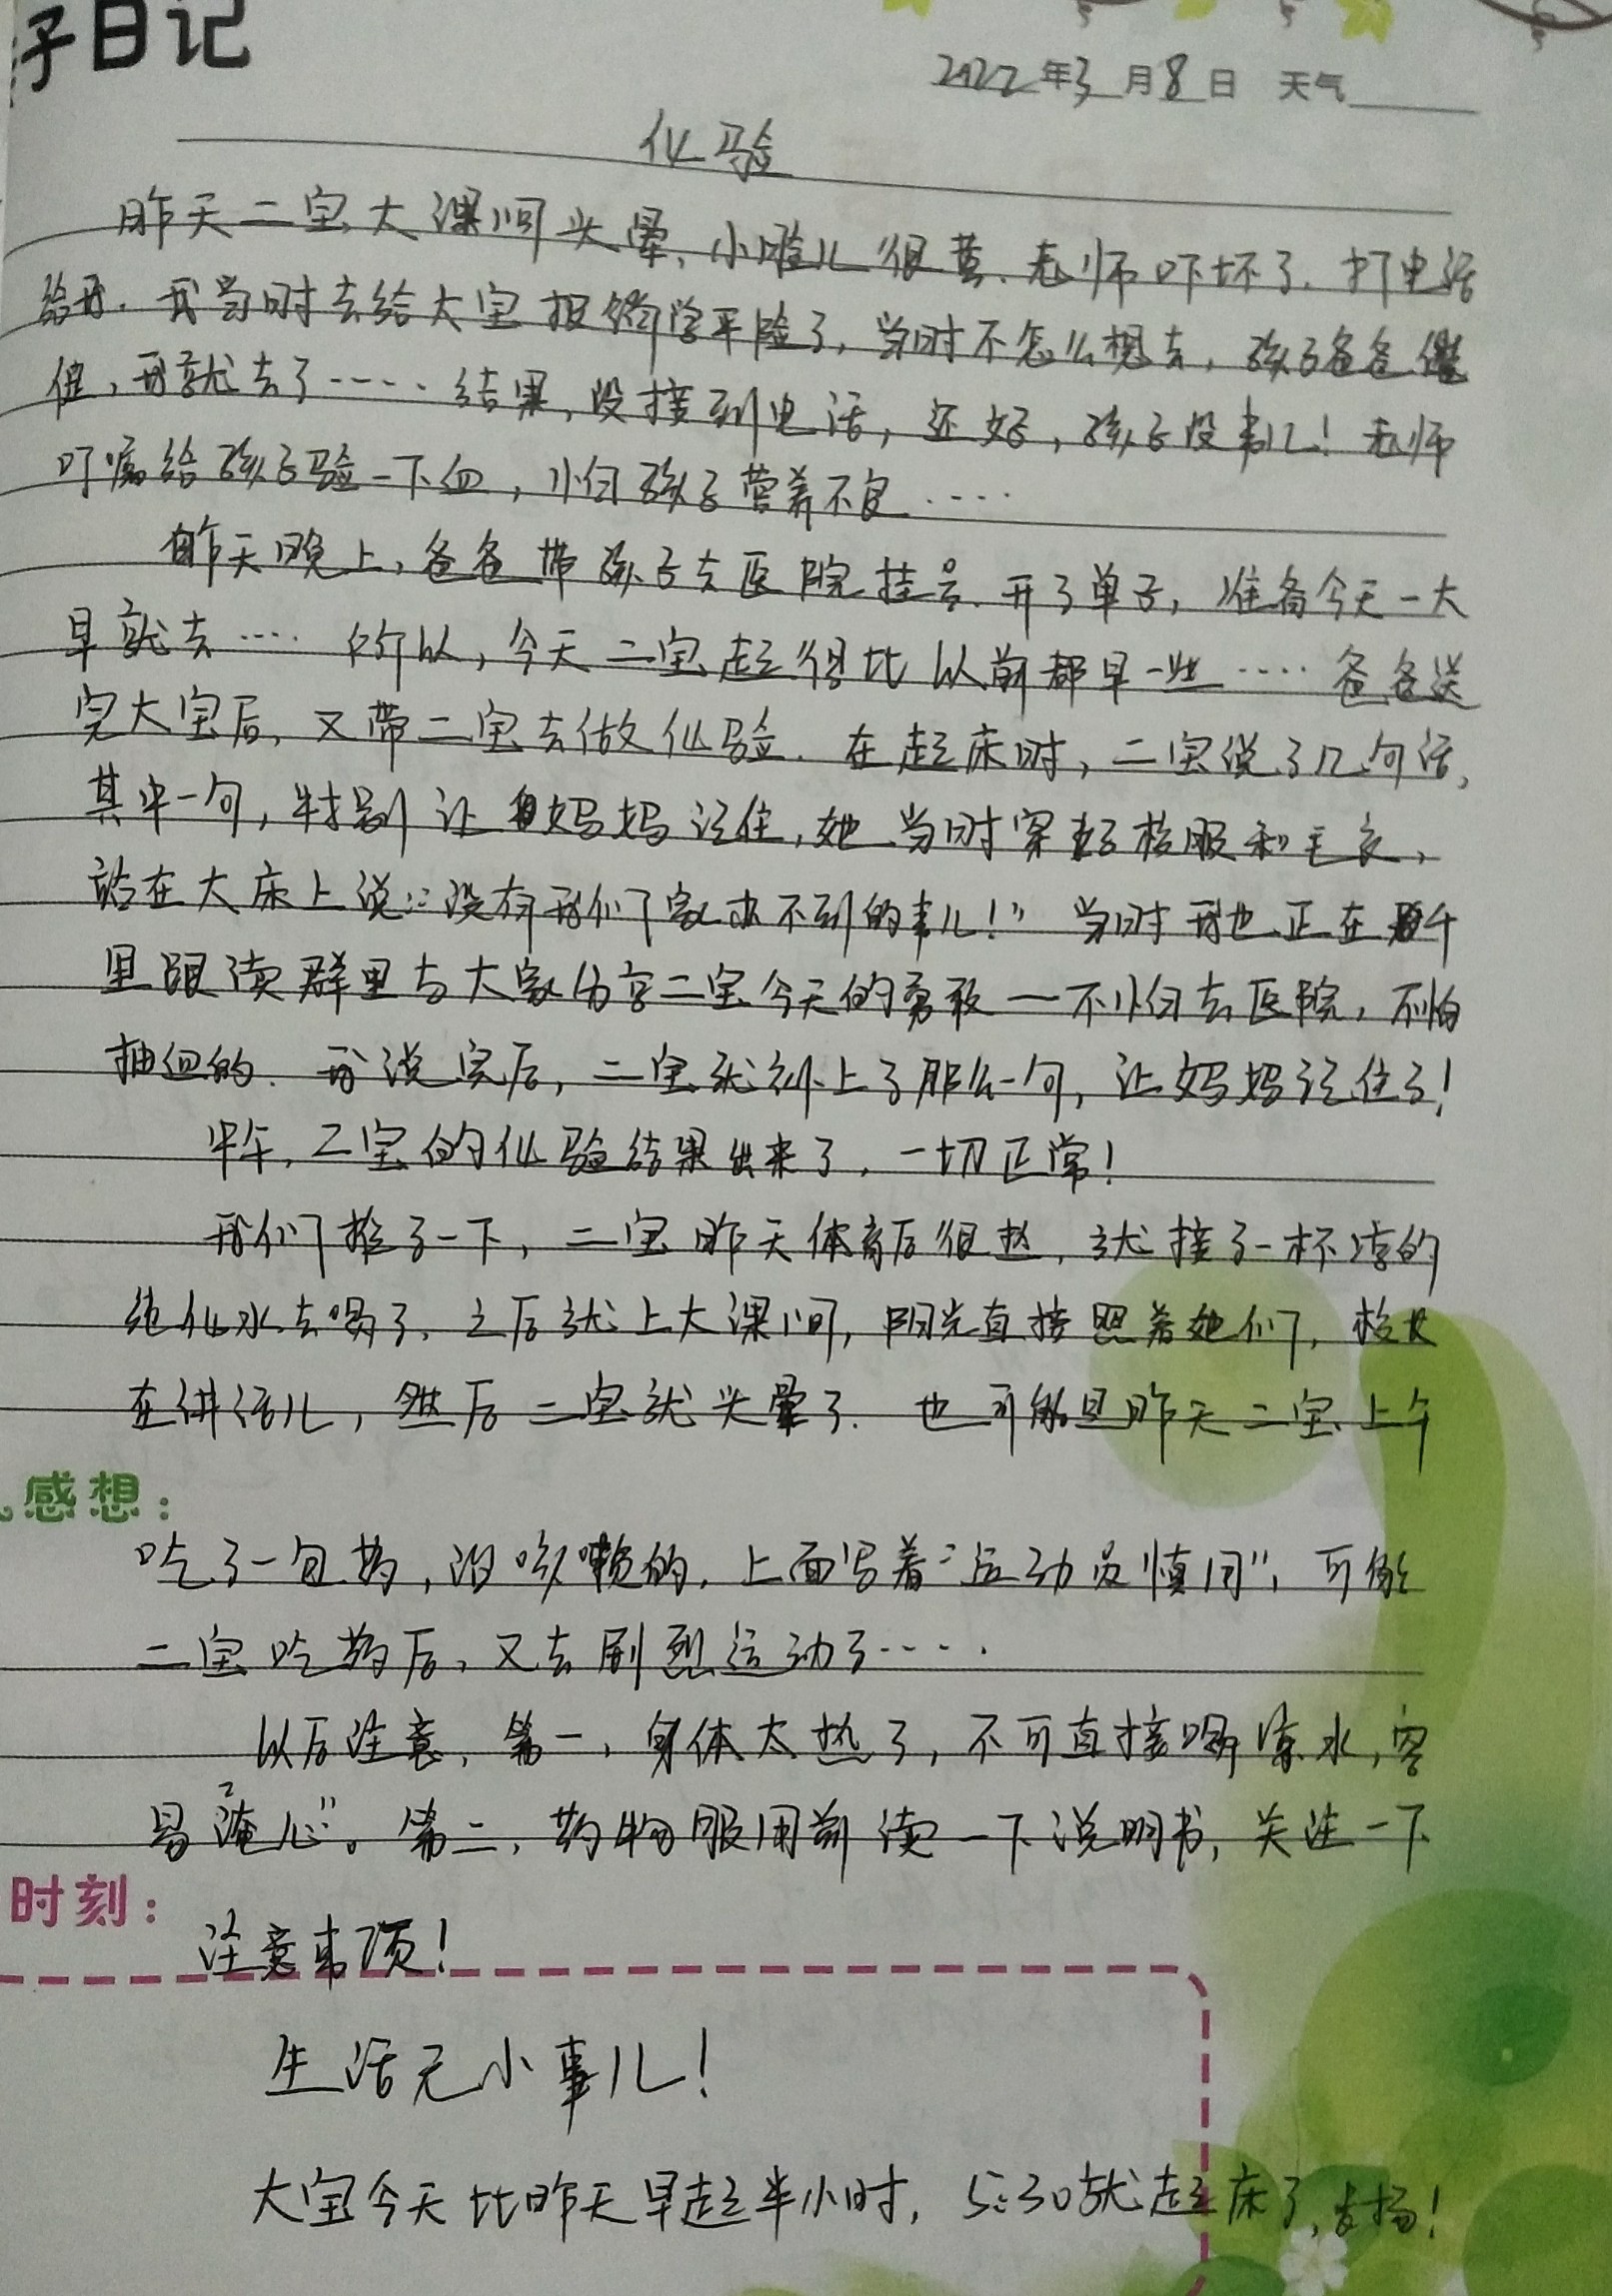 子日记
2022年3月8日 天气
化验
昨天二宝大课间头晕、小脸儿很黄、老师吓坏了.打电话
给我.我当时去给大宝报销学平险了,当时不怎么想去,孩子爸爸催
催,我就去了……结果,没接到电话,还好,孩子没事儿!老师
叮嘱给孩子验一下血,怕孩子营养不良……
昨天晚上,爸爸带孩子去医院挂号.开了单子,准备今天一大
早就去……所以,今天二宝起得比以前都早一些……爸爸送
完大宝后,又带二宝去做化验.在起床时,二宝说了几句话,
其中一句,特别让妈妈记住,她当时穿好校服和毛衣,
站在大床上说:“没有我们家办不到的事儿!”当时我也正在千
里跟读群里与大家分享二宝今天的勇敢—不怕去医院,不怕
抽血的.我说完后,二宝就补上了那么一句,让妈妈记住了!
中午,二宝的化验结果出来了,一切正常!
我们推了一下,二宝昨天体育后很热,就接了一杯凉的
纯化水去喝了.之后就上大课间,阳光直接照着她们,校长
在讲话儿,然后二宝就头晕了.也可能是昨天二宝上午
感想:
吃了一包药,治咳嗽的,上面写着“运动员慎用”,可能
二宝吃药后,又去剧烈运动了……
以后注意,第一,身体太热了,不可直接喝凉水,容
易“淹心”。第二,药物服用前读一下说明书,关注一下
时刻:
注意事项!
生活无小事儿!
大宝今天比昨天早起半小时,5:30就起床了,表扬!